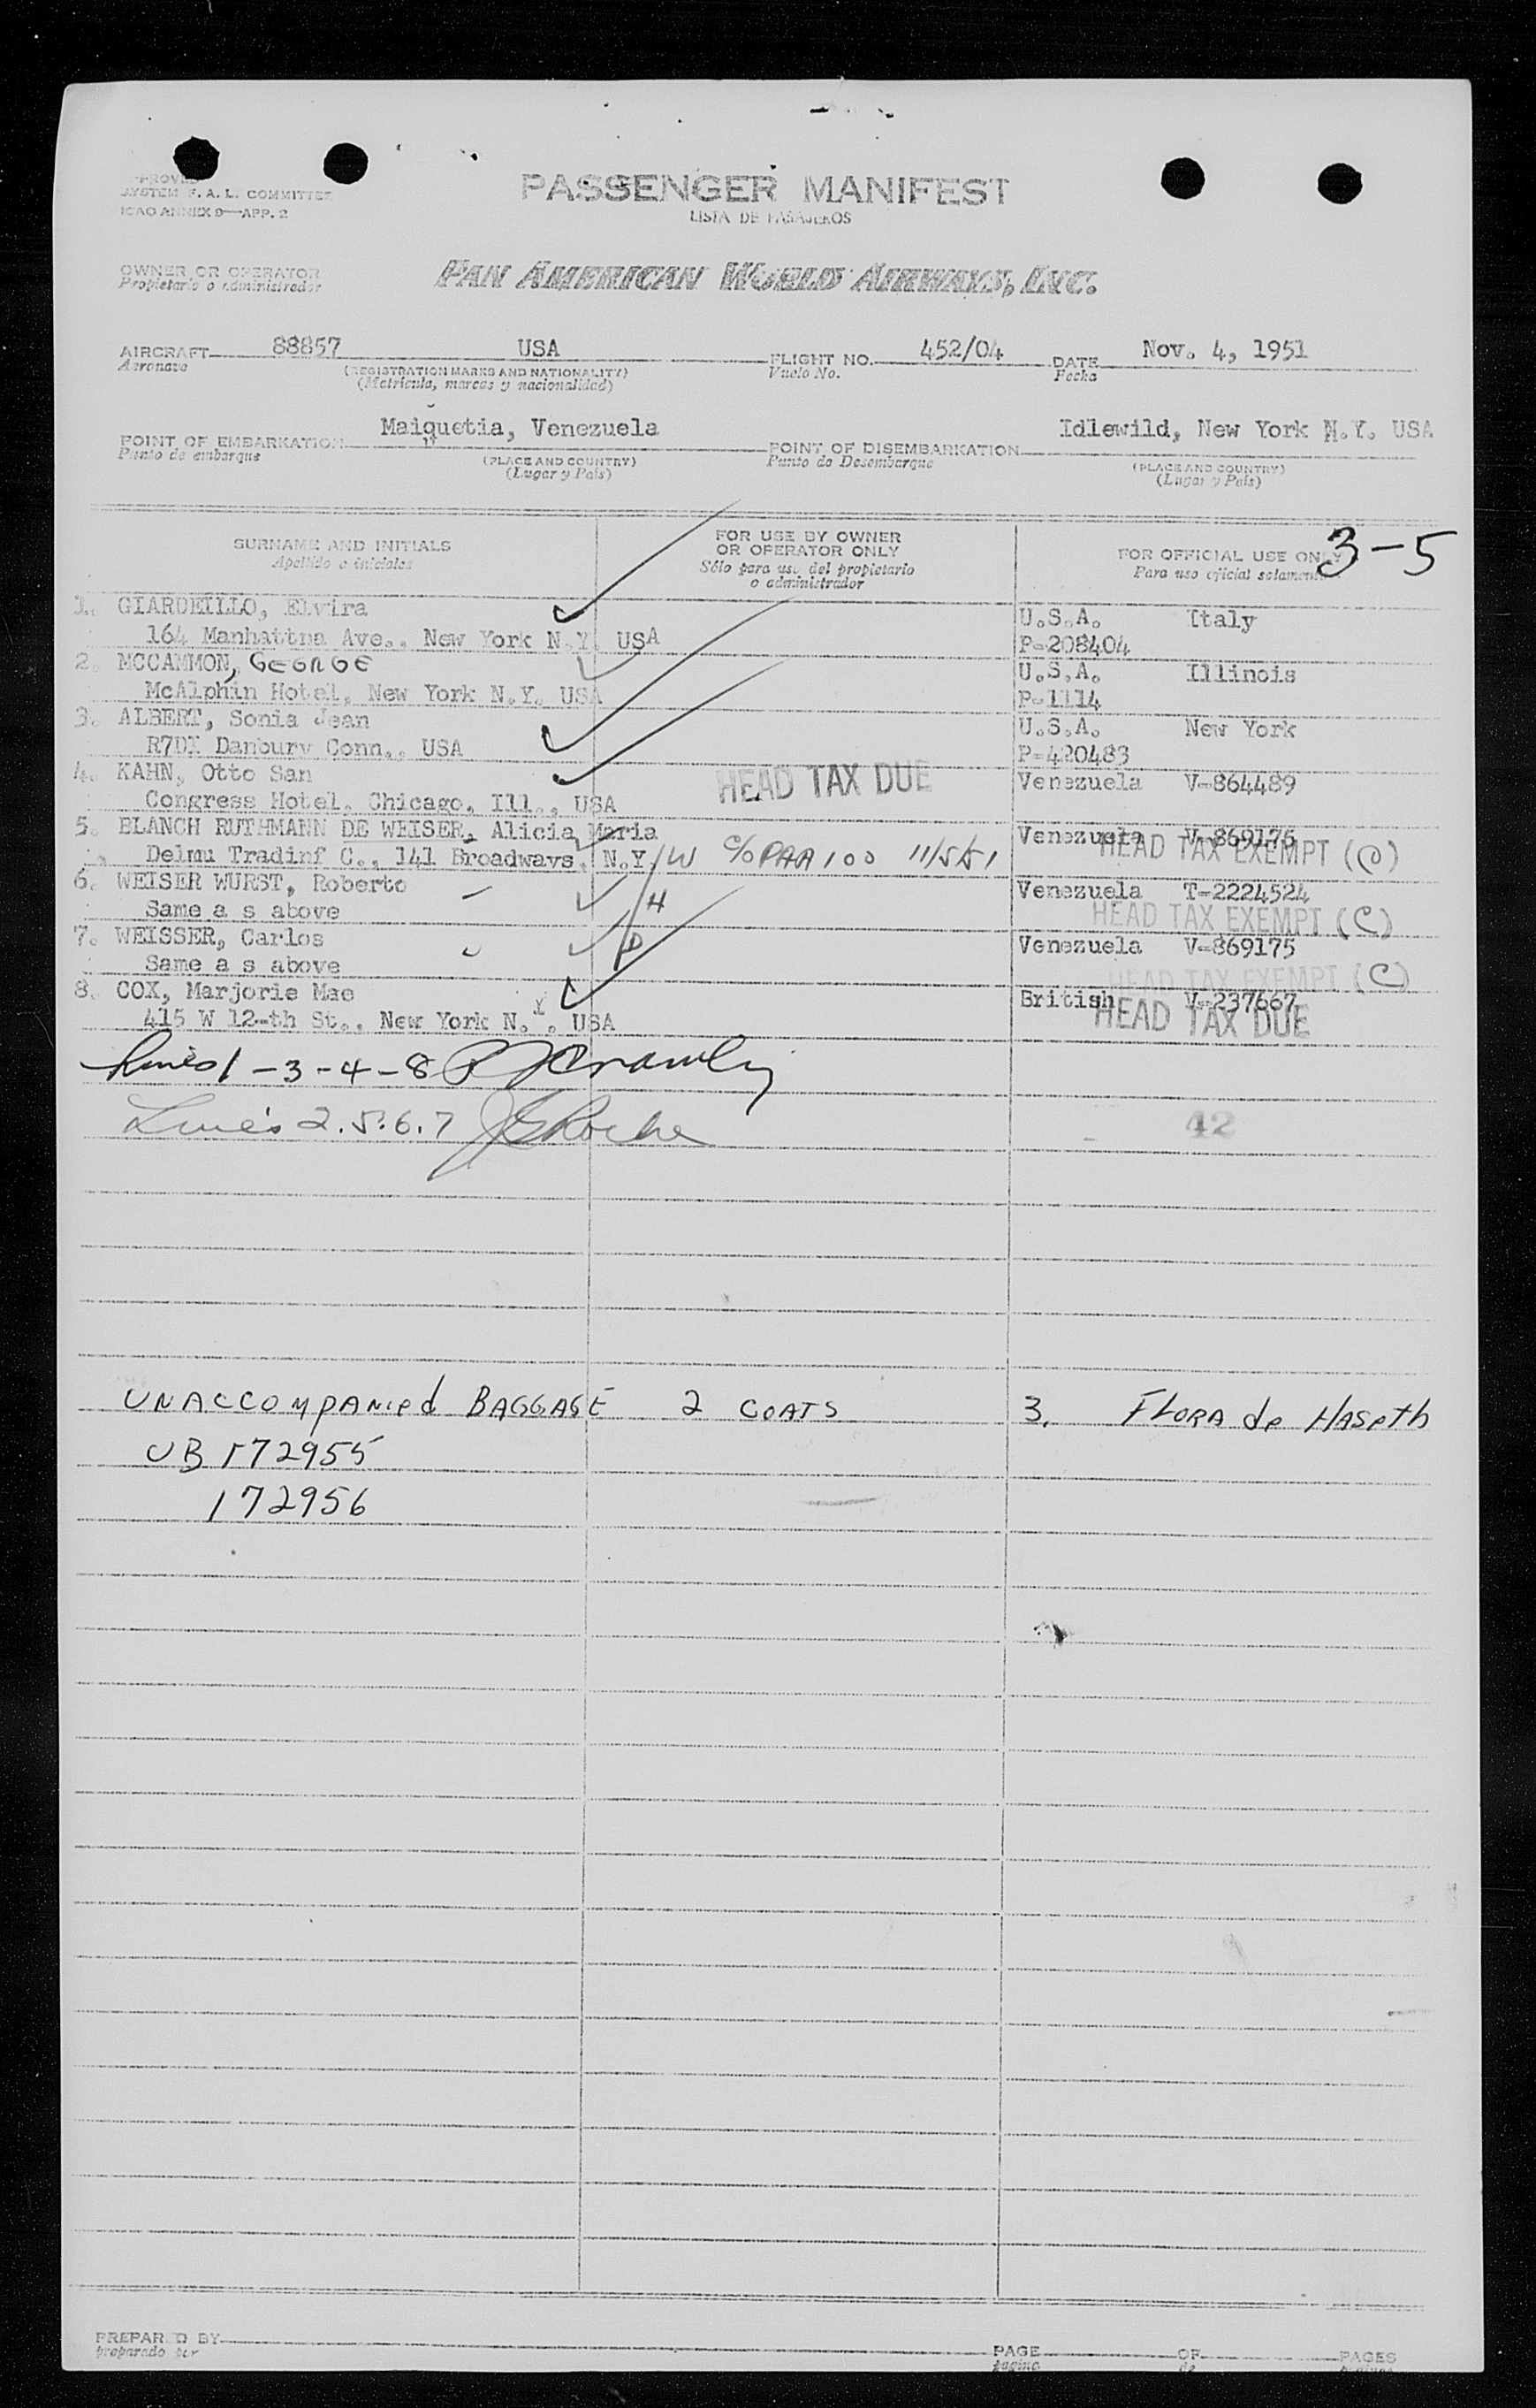 SYSTEM F. A. L. COMMITTEE
ICAO ANNEX 9—APP. 2
PASSENGER MANIFEST
LISTA DE PASAJEROS
OWNER OR OPERATOR
Propietario o administrador
PAN AMERICAN WORLD AIRWAYS, INC.
AIRCRAFT 88857 USA FLIGHT NO. 452/04 DATE Nov. 4, 1951
Aeronave (REGISTRATION MARKS AND NATIONALITY) Vuelo No. Fecha
(Matrícula, marcas y nacionalidad)
POINT OF EMBARKATION Maiquetia, Venezuela POINT OF DISEMBARKATION Idlewild, New York N.Y. USA
Punto de embarque (PLACE AND COUNTRY) Punto de Desembarque (PLACE AND COUNTRY)
(Lugar y País) (Lugar y País)
SURNAME AND INITIALS FOR USE BY OWNER OR OPERATOR ONLY FOR OFFICIAL USE ONLY 3-5
Apellido e iniciales Sólo para uso del propietario o administrador Para uso oficial solamente
1. GIARDEILLO, Elvira U.S.A. Italy
164 Manhattna Ave., New York N.Y. USA P-208404
2. MCCAMMON, GEORGE U.S.A. Illinois
McAlphin Hotel, New York N.Y. USA P-1114
3. ALBERT, Sonia Jean U.S.A. New York
Danbury Conn., USA P-420483
4. KAHN, Otto San HEAD TAX DUE Venezuela V-864489
Congress Hotel, Chicago, Ill., USA
5. BLANCH RUTHMANN DE WEISER, Alicia Maria Venezuela V-869176
Delmu Tradinf C., 141 Broadways, N.Y. W C/O PAA 100 11/5/51 HEAD TAX EXEMPT (C)
6. WEISER WURST, Roberto Venezuela T-2224524
Same a s above H HEAD TAX EXEMPT (C)
7. WEISSER, Carlos Venezuela V-869175
Same a s above P HEAD TAX EXEMPT (C)
8. COX, Marjorie Mae British V-237667
415 W 12-th St., New York N.Y. USA HEAD TAX DUE
Lines 1-3-4-8
Lines 2.5.6.7 J E Roche 42
UNACCOMPANIEd BAGGAGE 2 COATS 3. FLORA de HASETH
UB 172955
172956
PREPARED BY PAGE OF PAGES
preparado por página de